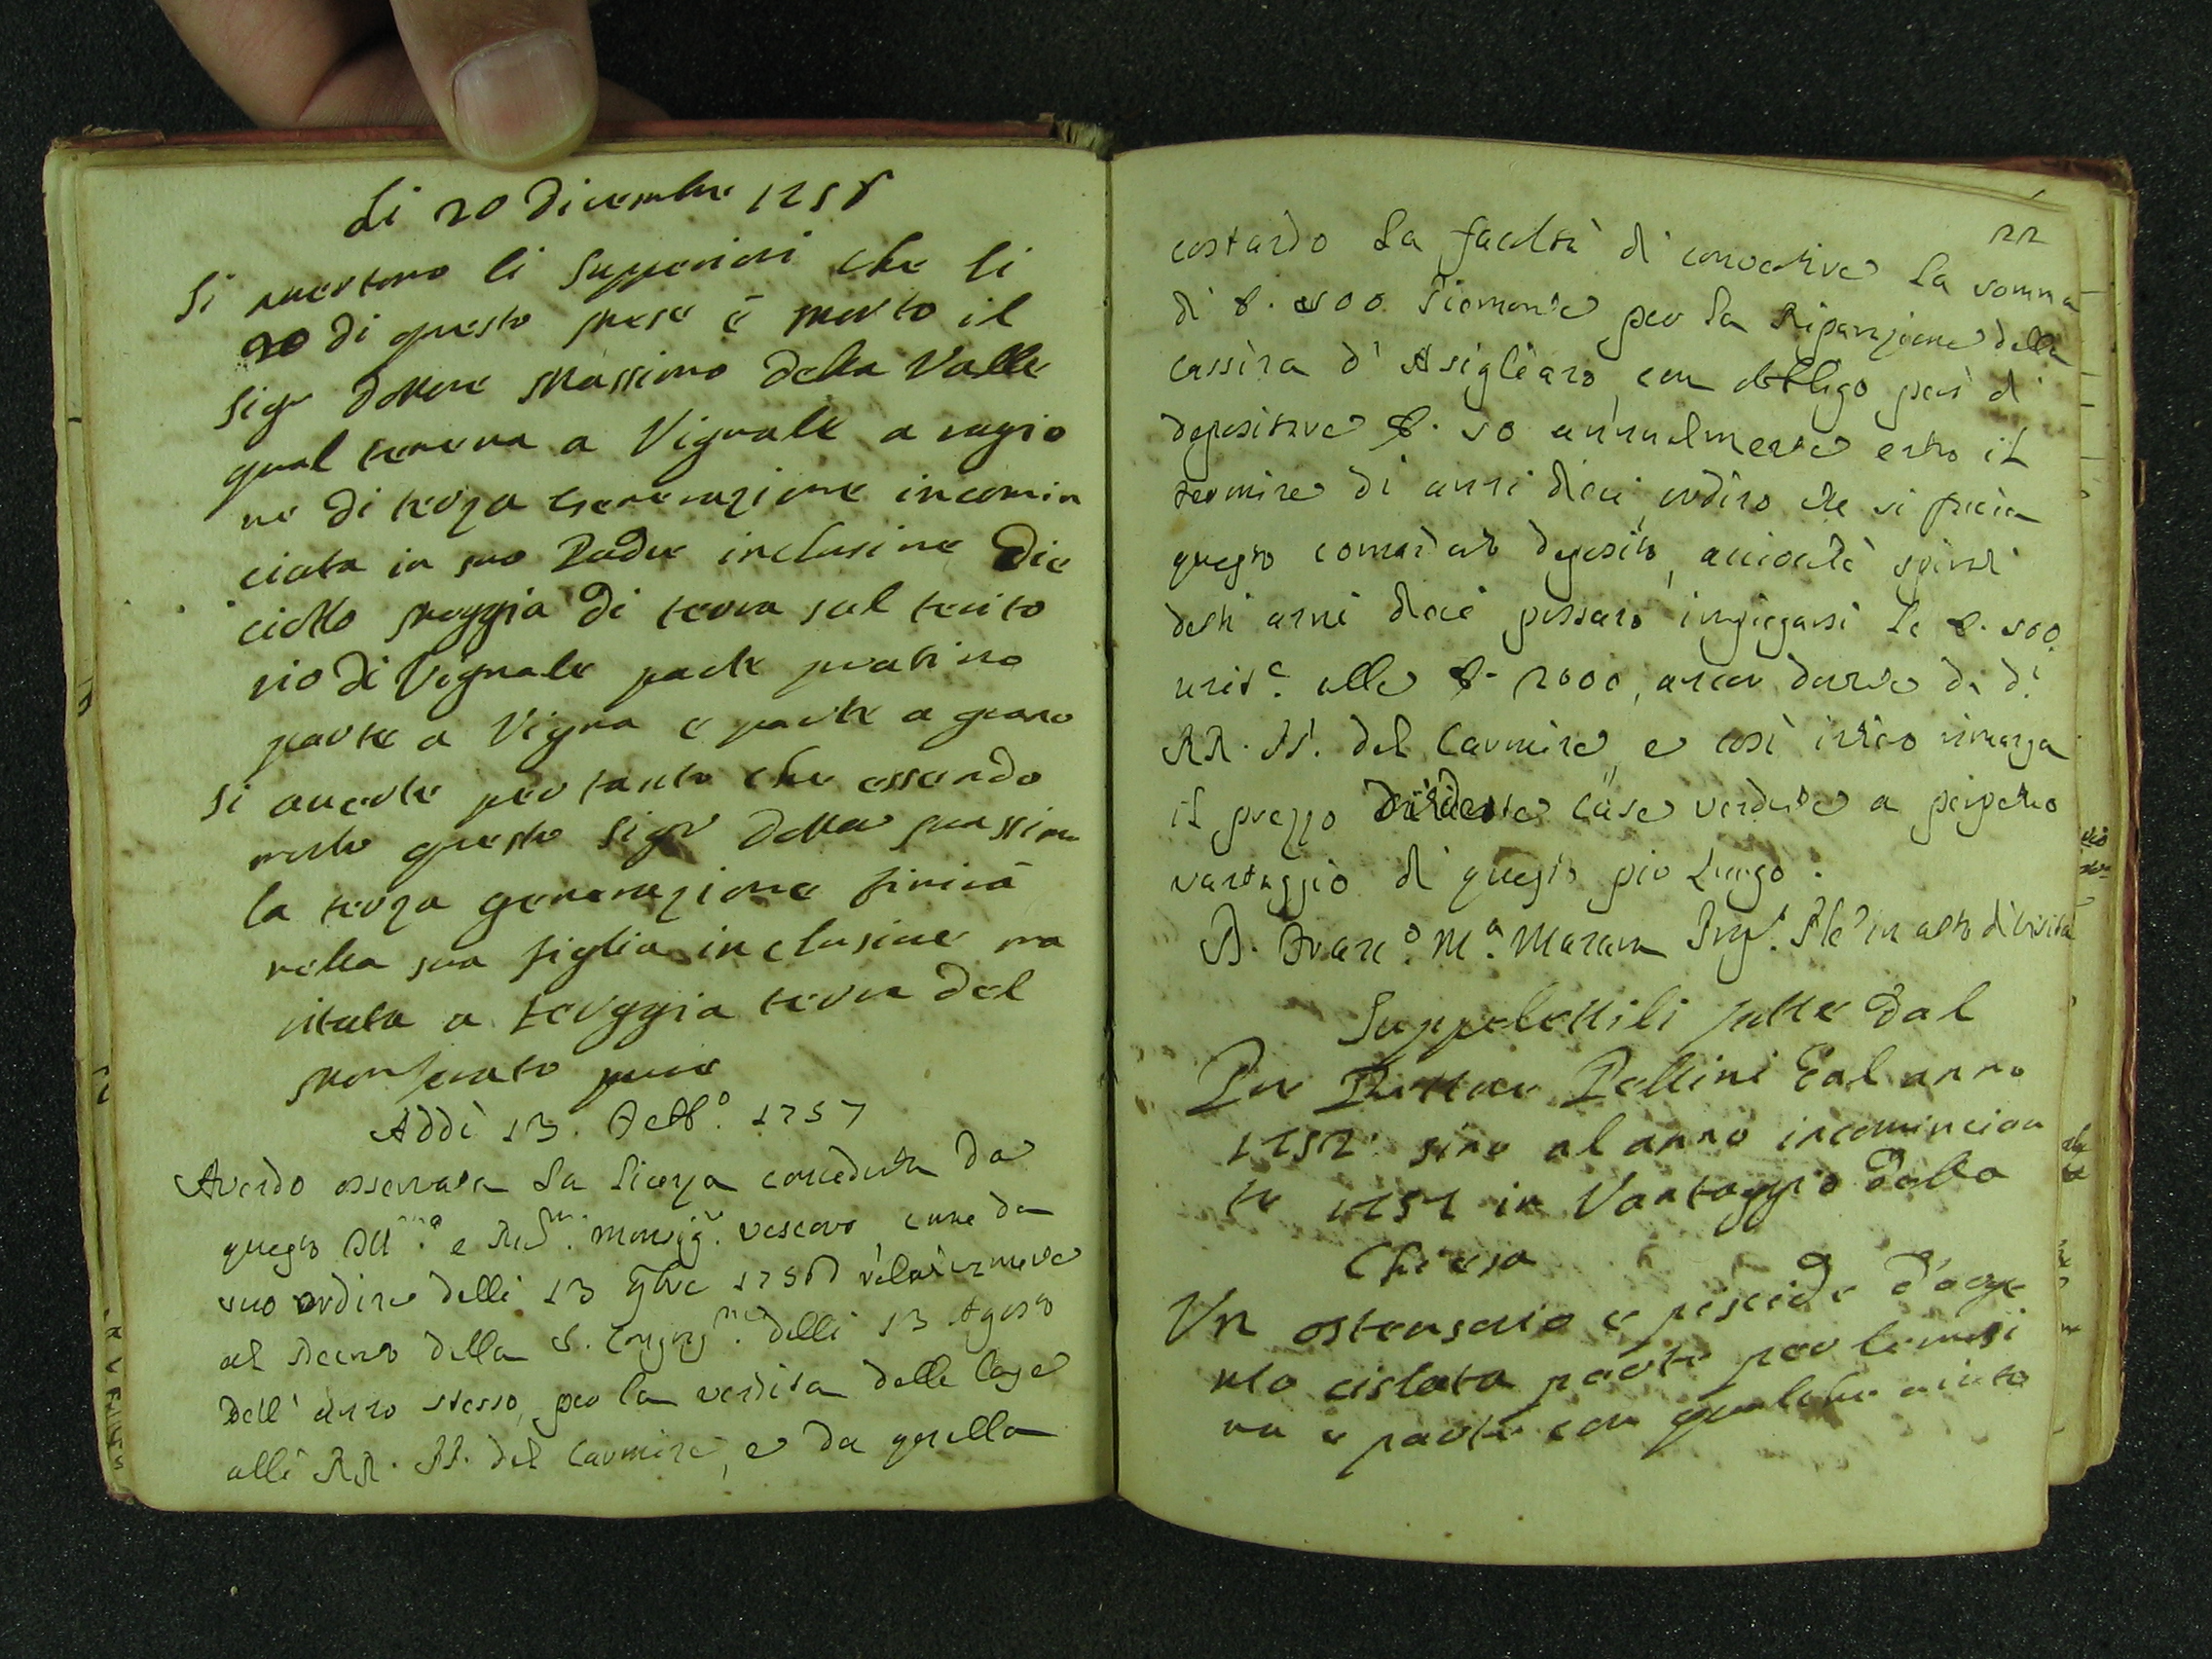 Li 20 Dicembre 1756
Si avertono li Supperiori che li
20 di questo mese è morto il
Sigr Dottore Massimo Della Valle
qual teneva a Vignale a ragio
ne di terza Generazione incomin
ciata in suo Padre inclusive Die
ciotto moggia di terra sul terito
rio di Vignale parte prativo
parte a Vigna e parte a grano
Si averte pertanto che essendo
morto questo Sigr Dotto Massimo
la terza generazione finirà
nella sua figlia inclusive ma
ritata a terra del
Monferato
Addì 13. Febb.o 1757
Avendo osservata la licenza conceduta da
questo Ill.mo e Rev.mo Monsig.r Vescovo, come da
suo ordine delli 13 9bre 1756
al decreto della S. Congreg.ne delli 13 Agosto
dell' anno stesso, per la vendita delle Case
alli RR. PP. del Carmine, e da quella
22
costando la facoltà di convertire la somma
di £. 500 Piemonte per la Riparazione della
cassina d' Asigliano, con obbligo però di
depositare £. 50 annualmente entro il
termine di anni dieci, ordino che si faccia
questo comandato deposito, acciochè spirati
detti anni dieci possano impiegarsi le £. 500.
unit.e alle £. 2000, ancor dovute da d.i
RR. PP. del Carmine, e così intiero rimanga
il prezzo case vendute a perpetuo
vantaggio di questo pio Luogo.
F. Fran.co M.a in atto di visita
Suppelettili fatte dal
Pre Rettore Pellini dal anno
1752 sino al anno incomincian
te 1757 in Vantaggio della
Chiesa
Un ostensorio e piscide d'arge
nto cislata parte per lemosi
na e parte con qualche aiuto